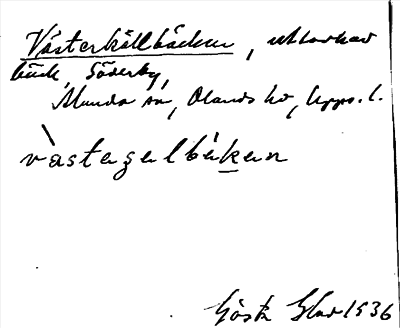 Västerkällbäcken, uttorkad
bäck, Söderby,
Munda sn, Olands hd, Upps. l.
västergelbäken
Gösta 1936